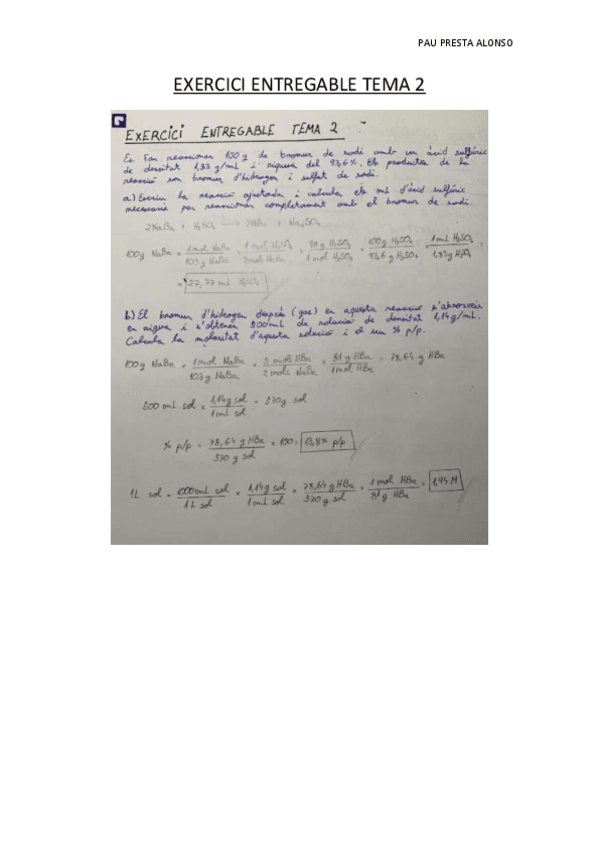 PAU PRESTA ALONSO
EXERCICI ENTREGABLE TEMA 2
EXERCICI ENTREGABLE TEMA 2
Ex. Fan reaccionar 100 g de bromur de sodi amb un àcid sulfúric
de densitat 1,83 g/mL i riquesa del 93,6%. Els productes de la
reacció son bromur d'hidrogen i sulfat de sodi.
a) Escriu la reacció ajustada i calcula els mL d'àcid sulfúric
necessaris per reaccionar completament amb el bromur de sodi.
2NaBr + H₂SO₄ → 2HBr + Na₂SO₄
100g NaBr × 1 mol NaBr / 103 g NaBr × 1 mol H₂SO₄ / 2 mol NaBr × 98 g H₂SO₄ / 1 mol H₂SO₄ × 100g H₂SO₄ / 93,6 g H₂SO₄ × 1 mL H₂SO₄ / 1,83g H₂SO₄ =
= 27,77 ml H₂SO₄
b) El bromur d'hidrogen després (gas) en aquesta reacció s'absorveix
en aigua i s'obtenen 500 mL de solució de densitat 1,14 g/mL.
Calcula la molaritat d'aquesta solució i el seu % p/p.
100g NaBr × 1 mol NaBr / 103 g NaBr × 2 mols HBr / 2 mols NaBr × 81 g HBr / 1 mol HBr = 78,64 g HBr
500 mL sol × 1,14g sol / 1 mL sol = 570g sol
% p/p = 78,64 g HBr / 570 g sol × 100 = 13,8% p/p
1L sol × 1000 mL sol / 1L sol × 1,14g sol / 1 mL sol × 78,64 g HBr / 570 g sol × 1 mol HBr / 81 g HBr = 1,94 M